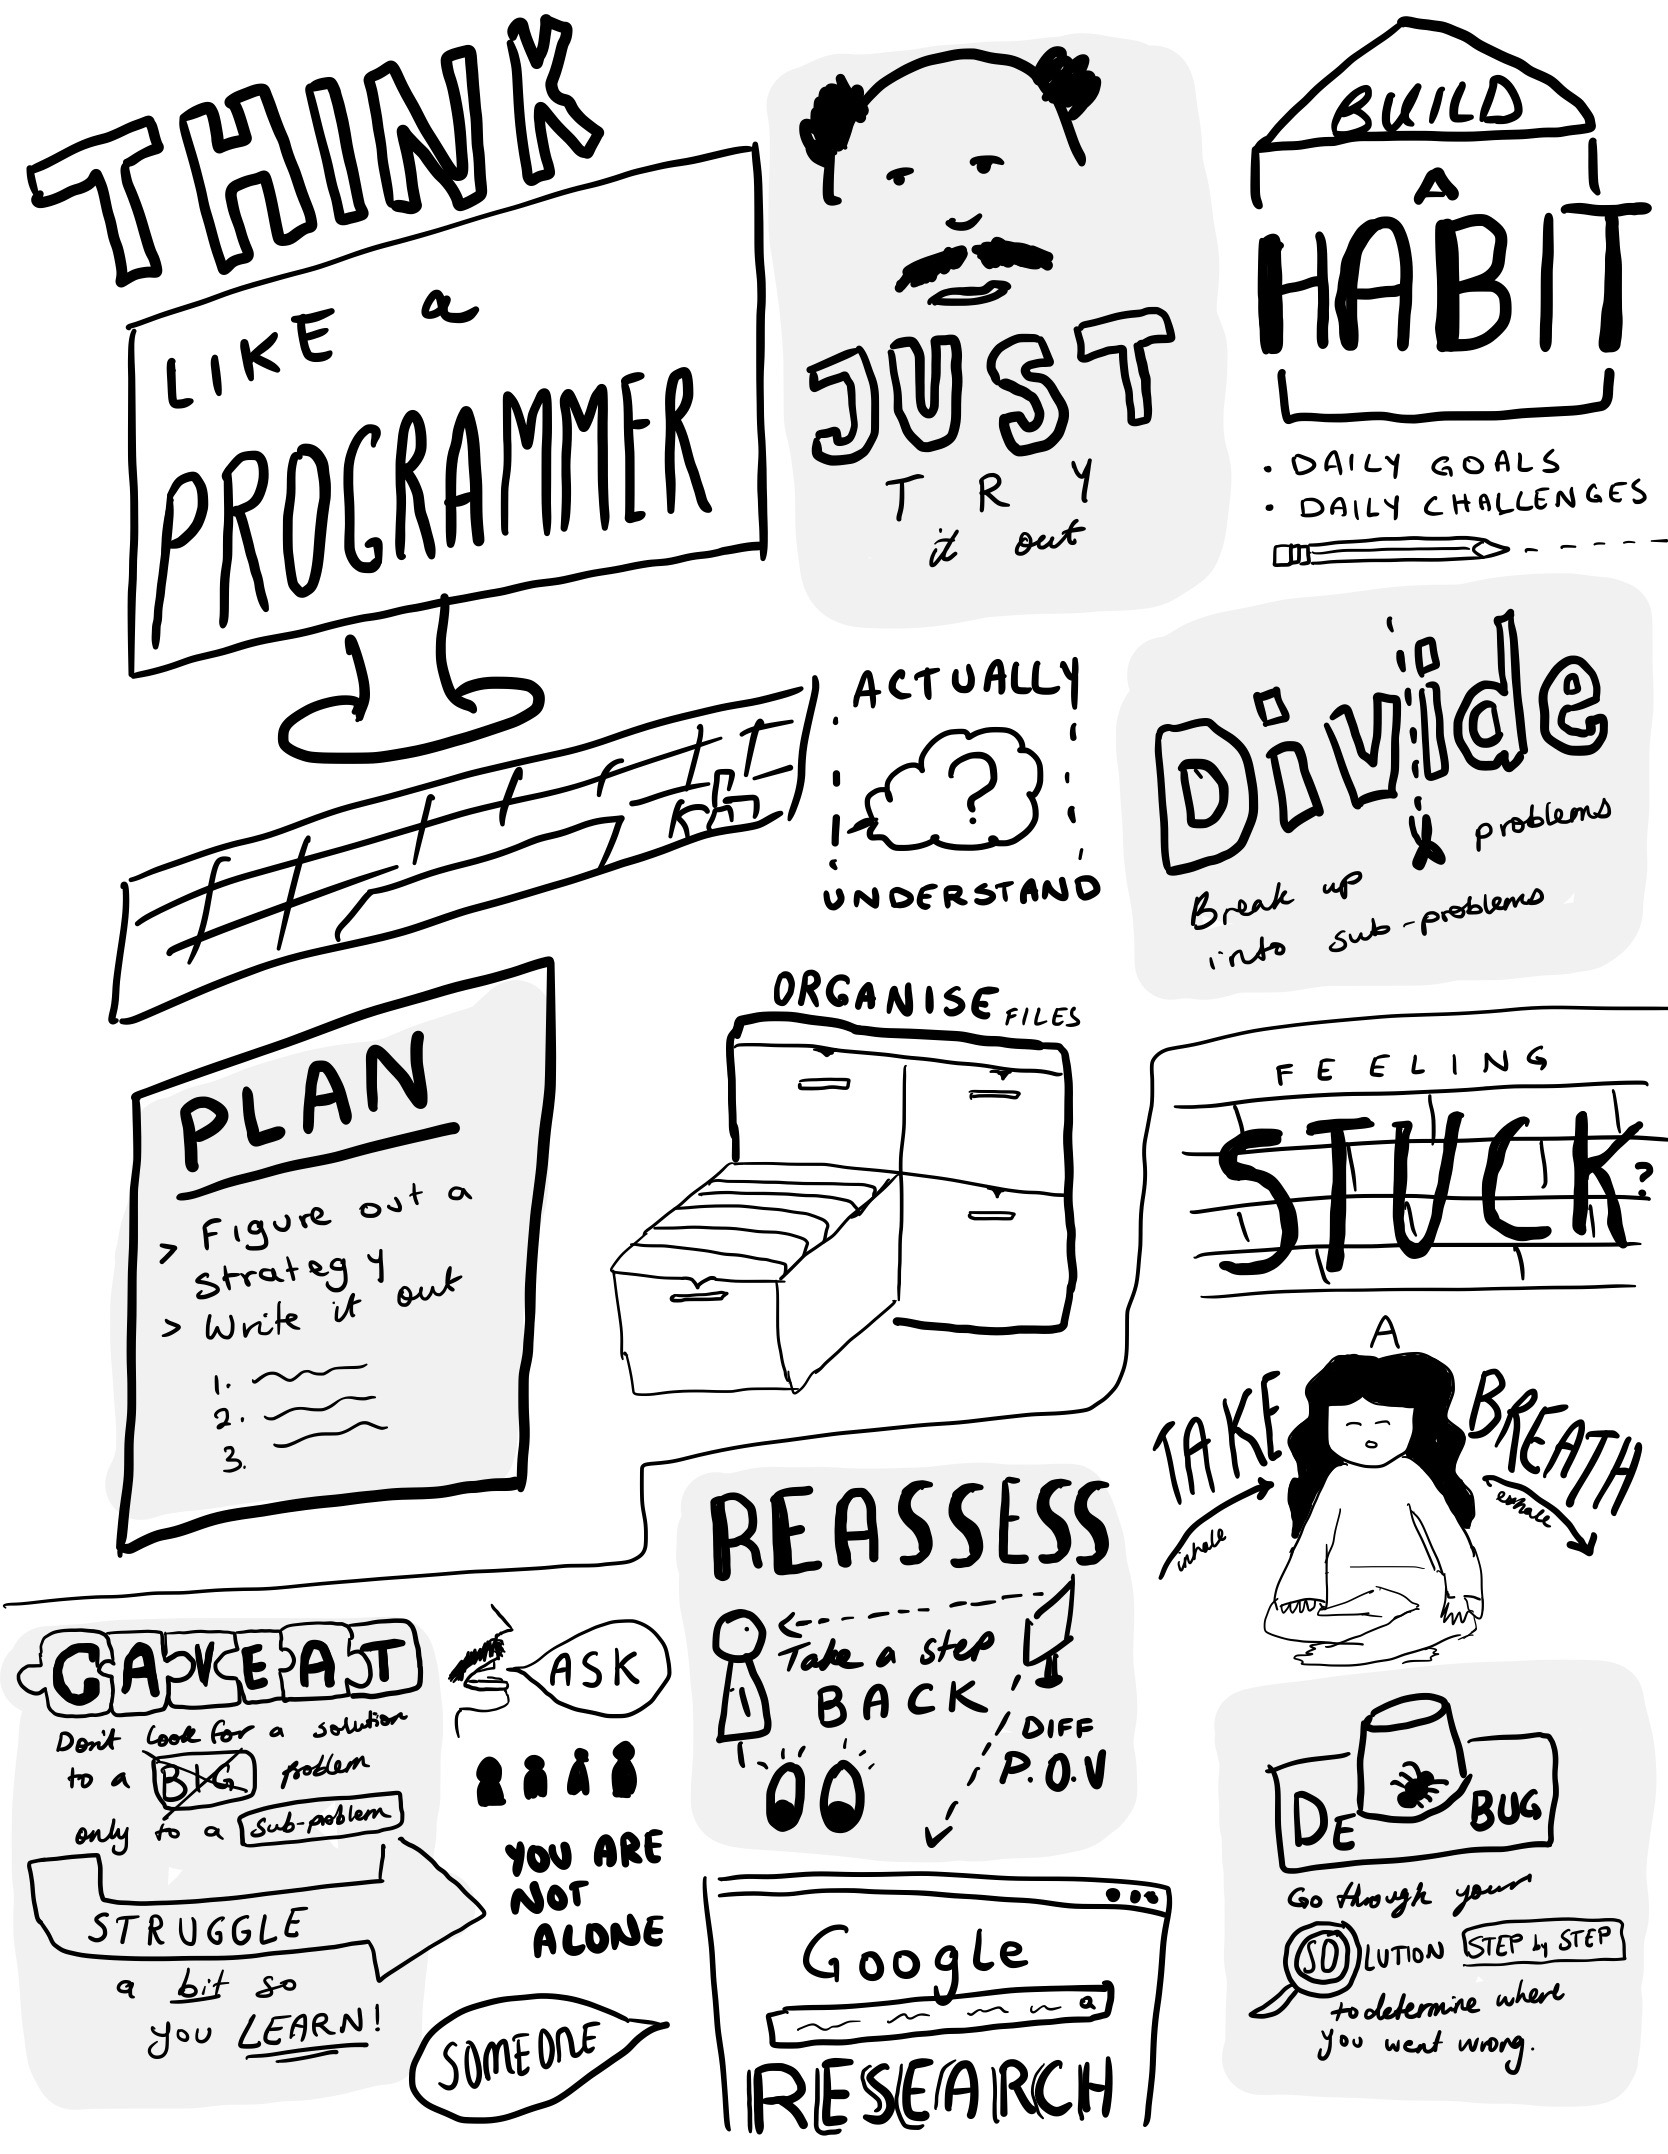 THINK
LIKE a
PROGRAMMER
JUST
TRY
it out
BUILD
A
HABIT
• DAILY GOALS
• DAILY CHALLENGES
ACTUALLY
?
UNDERSTAND
Divide
Break up problems
into sub-problems
PLAN
> Figure out a
strategy
> Write it out
1.
2.
3.
ORGANISE FILES
FEELING
STUCK?
TAKE A BREATH
inhale
exhale
REASSESS
Take a step
BACK
DIFF
P.O.V
CAVEAT
Don't look for a solution
to a BIG problem
only to a sub-problem
STRUGGLE
a bit so
you LEARN!
ASK
YOU ARE
NOT
ALONE
SOMEONE
Google
RESEARCH
DEBUG
Go through your
SOLUTION STEP by STEP
to determine where
you went wrong.